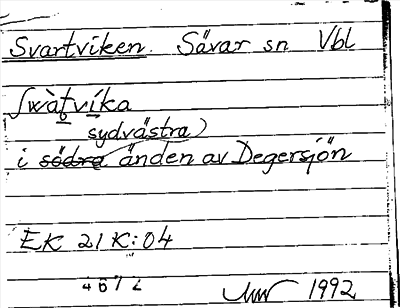 Svartviken. Sävar sn Vbl
Swàtvíka
sydvästra)
i södra änden av Degersjön
EK 21 K:04
4672
1992